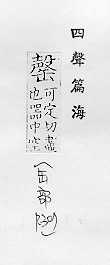 四聲篇海
罄
可定切盡
也器中空
(缶部